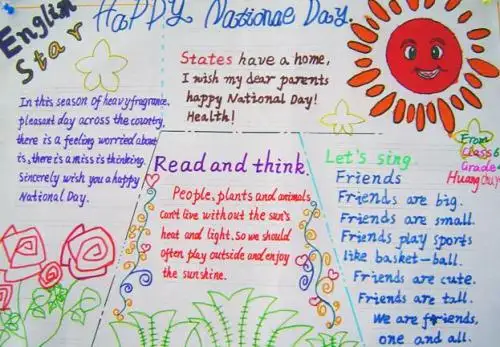 English
Star
HaPPY Nationae Day.
In this season of heavy fragrance,
pleasant day across the country,
there is a feeling worried about
is, there is a miss is thinking.
Sincerely wish you a happy
National Day.
States have a home,
I wish my dear parents
happy National Day!
Health!
Read and think.
People, plants and animals
can't live without the sun's
heat and light. so we should
often play outside and enjoy
the sunshine.
Let's sing.
Friends
Friends are big.
Friends are small.
Friends play sports
like basket-ball.
Friends are cute.
Friends are tall.
We are friends,
one and all.
From
Class 6
Grade
Huang